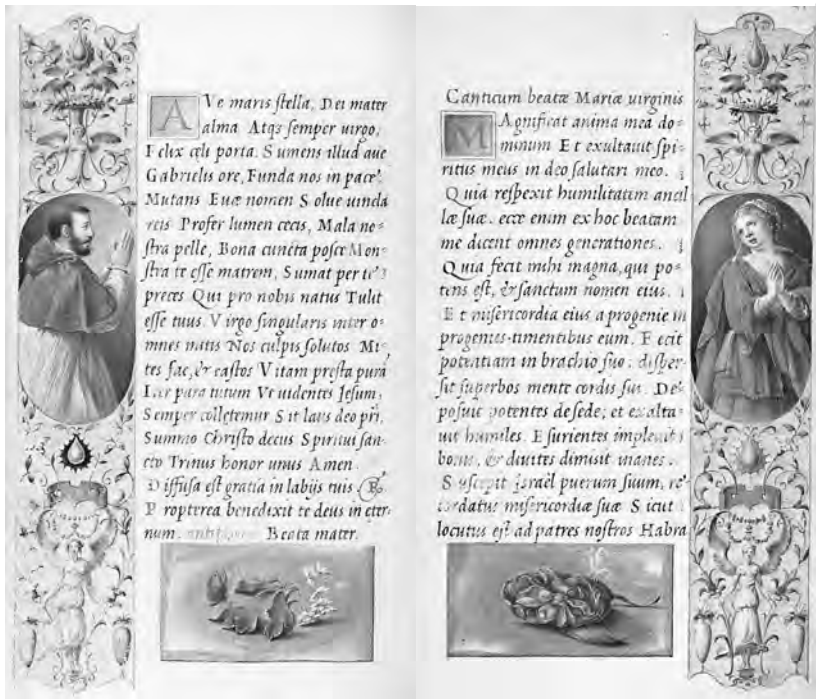 AVe maris stella, Dei mater
alma Atqs semper uirgo,
Felix cęli porta. Sumens illud aue
Gabrielis ore, Funda nos in pace
Mutans Euæ nomen Solue uincla
reis Profer lumen cecis, Mala no=
stra pelle, Bona cuncta posce Mon=
stra te esse matrem, Sumat per te
preces Qui pro nobis natus Tulit
esse tuus Virgo singularis inter o=
mnes mitis Nos culpis solutos Mi=
tes fac, & castos Vitam presta purā
Iter para tutum Vt uidentes Jesum,
Semper colletemur Sit laus deo pri,
Summo Christo decus Spiritui san-
cto Trinus honor unus Amen
Diffusa est gratia in labijs tuis. R.
Propterea benedixit te deus in eter-
num. antiphona Beata mater.
Canticum beatæ Mariæ uirginis
MAgnificat anima mea do=
minum Et exultauit spi=
ritus meus in deo salutari meo.
Quia respexit humilitatem ancil
læ suæ. ecce enim ex hoc beatam
me dicent omnes generationes.
Quia fecit mihi magna, qui po=
tens est, & sanctum nomen eius.
Et misericordia eius a progenie in
progenies timentibus eum. Fecit
potentiam in brachio suo: disper=
sit superbos mente cordis sui. De=
posuit potentes de sede; et exalta=
uit humiles. Esurientes impleuit
bonis, & diuites dimisit inanes.
Suscepit israël puerum suum, re=
cordatus misericordiæ suæ Sicut
locutus est ad patres nostros Habra